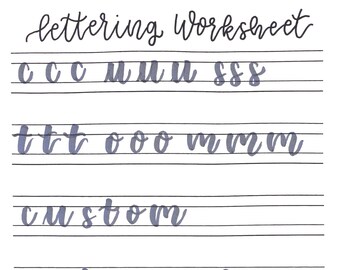 lettering Worksheet
c c c u u u s s s
t t t o o o m m m
c u s t o m